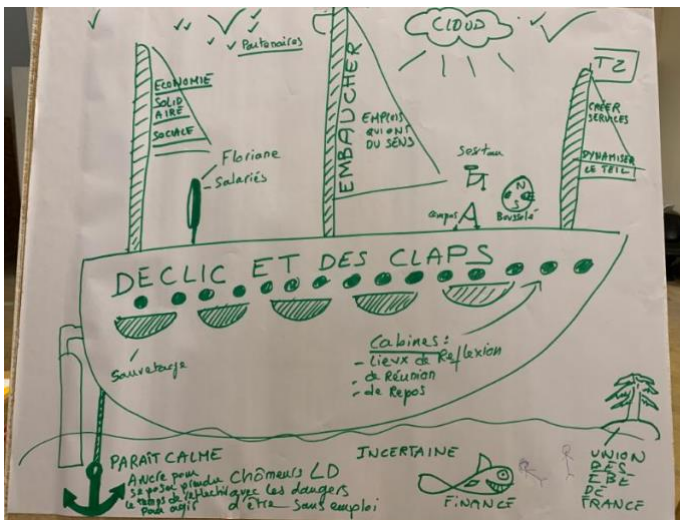 Partenaires
CLOUD
TZ
ECONOMIE
SOLID
AIRE
SOCIALE
EMBAUCHER
EMPLOIS
QUI ONT
DU SENS
CRÉER
SERVICES
DYNAMISER
LE TEIL
Floriane
- Salariés
compas
N
S
Boussole
DECLIC ET DES CLAPS
Sauvetage
Cabines :
- Lieux de Reflexion
- de Réunion
- de Repos
PARAÎT CALME
Ancre pour
se poser prendre
le temps de réflechir
pour agir
Chômeurs LD
avec les dangers
d'être sans emploi
INCERTAINE
FINANCE
UNION
DES
EBE
DE
FRANCE